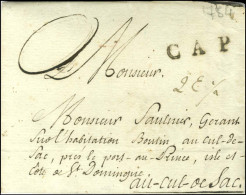 CAP
A Monsieur
Monsieur Saulnier, Gerant
Sur l'habitation Boutin au cul-de-
Sac, pres le port-au-Prince, isle et
Cote de St Domingue
au-Cul-de-Sac